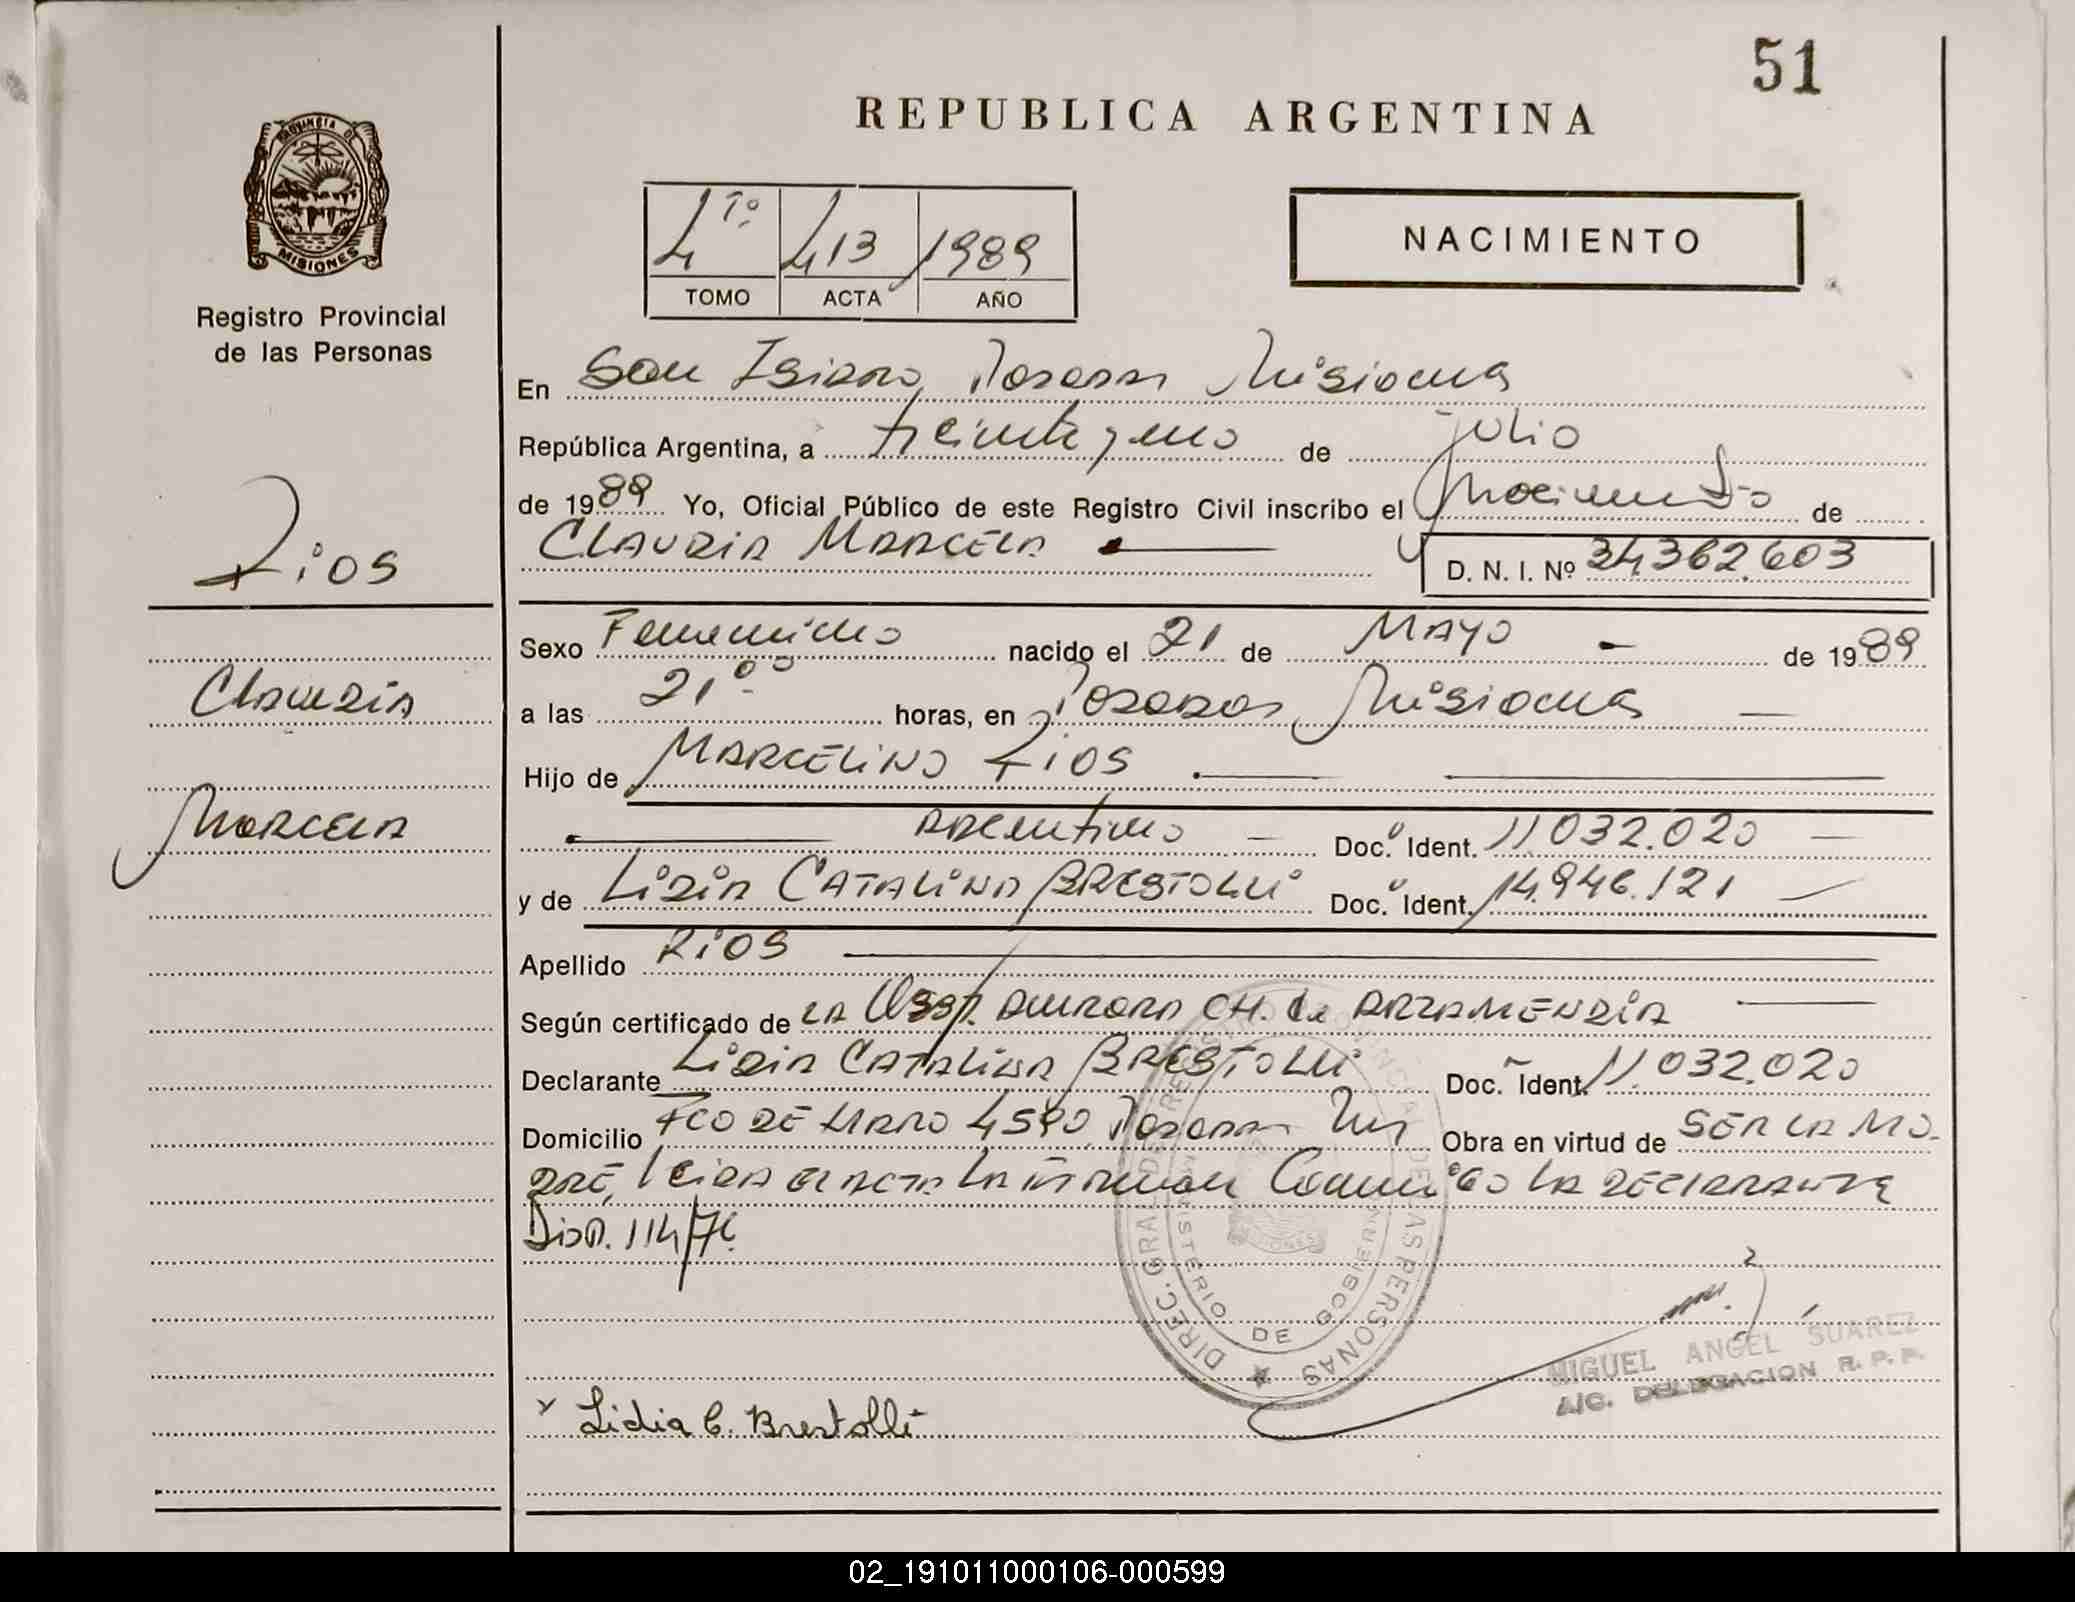 51
REPUBLICA ARGENTINA
PROVINCIA DE
MISIONES
Registro Provincial
de las Personas
4 Tº. 413 1989
TOMO ACTA AÑO
NACIMIENTO
En San Isidro, Posadas Misiones
República Argentina, a treinta y uno de julio
de 1989 Yo, Oficial Público de este Registro Civil inscribo el Nacimiento de
Claudia Marcela
D. N. I. Nº 34.362.603
Rios
Claudia
Marcela
Sexo Femenino nacido el 21 de Mayo - de 1989
a las 21 00 horas, en Posadas Misiones —
Hijo de Marcelino Rios
Argentino — Doc. Ident. 11.032.020 —
y de Lidia Catalina Brestolli Doc. Ident. 14.946.121 —
Apellido Rios
Según certificado de la Obst. Aurora CH. de Arzamendia
Declarante Lidia Catalina Brestolli Doc. Ident. 11.032.020
Domicilio Fco de Haro 4590, Posadas Mis Obra en virtud de ser la ma-
dre, leida el acta la firman conmigo la declarante
Disp. 114/76.
DIREC. GRAL. DEL REGISTRO PROVINCIAL DE LAS PERSONAS
MINISTERIO DE GOBIERNO
MISIONES
MIGUEL ANGEL SUAREZ
A/C. DELEGACION R. P. P.
x Lidia C. Brestolli
02_191011000106-000599